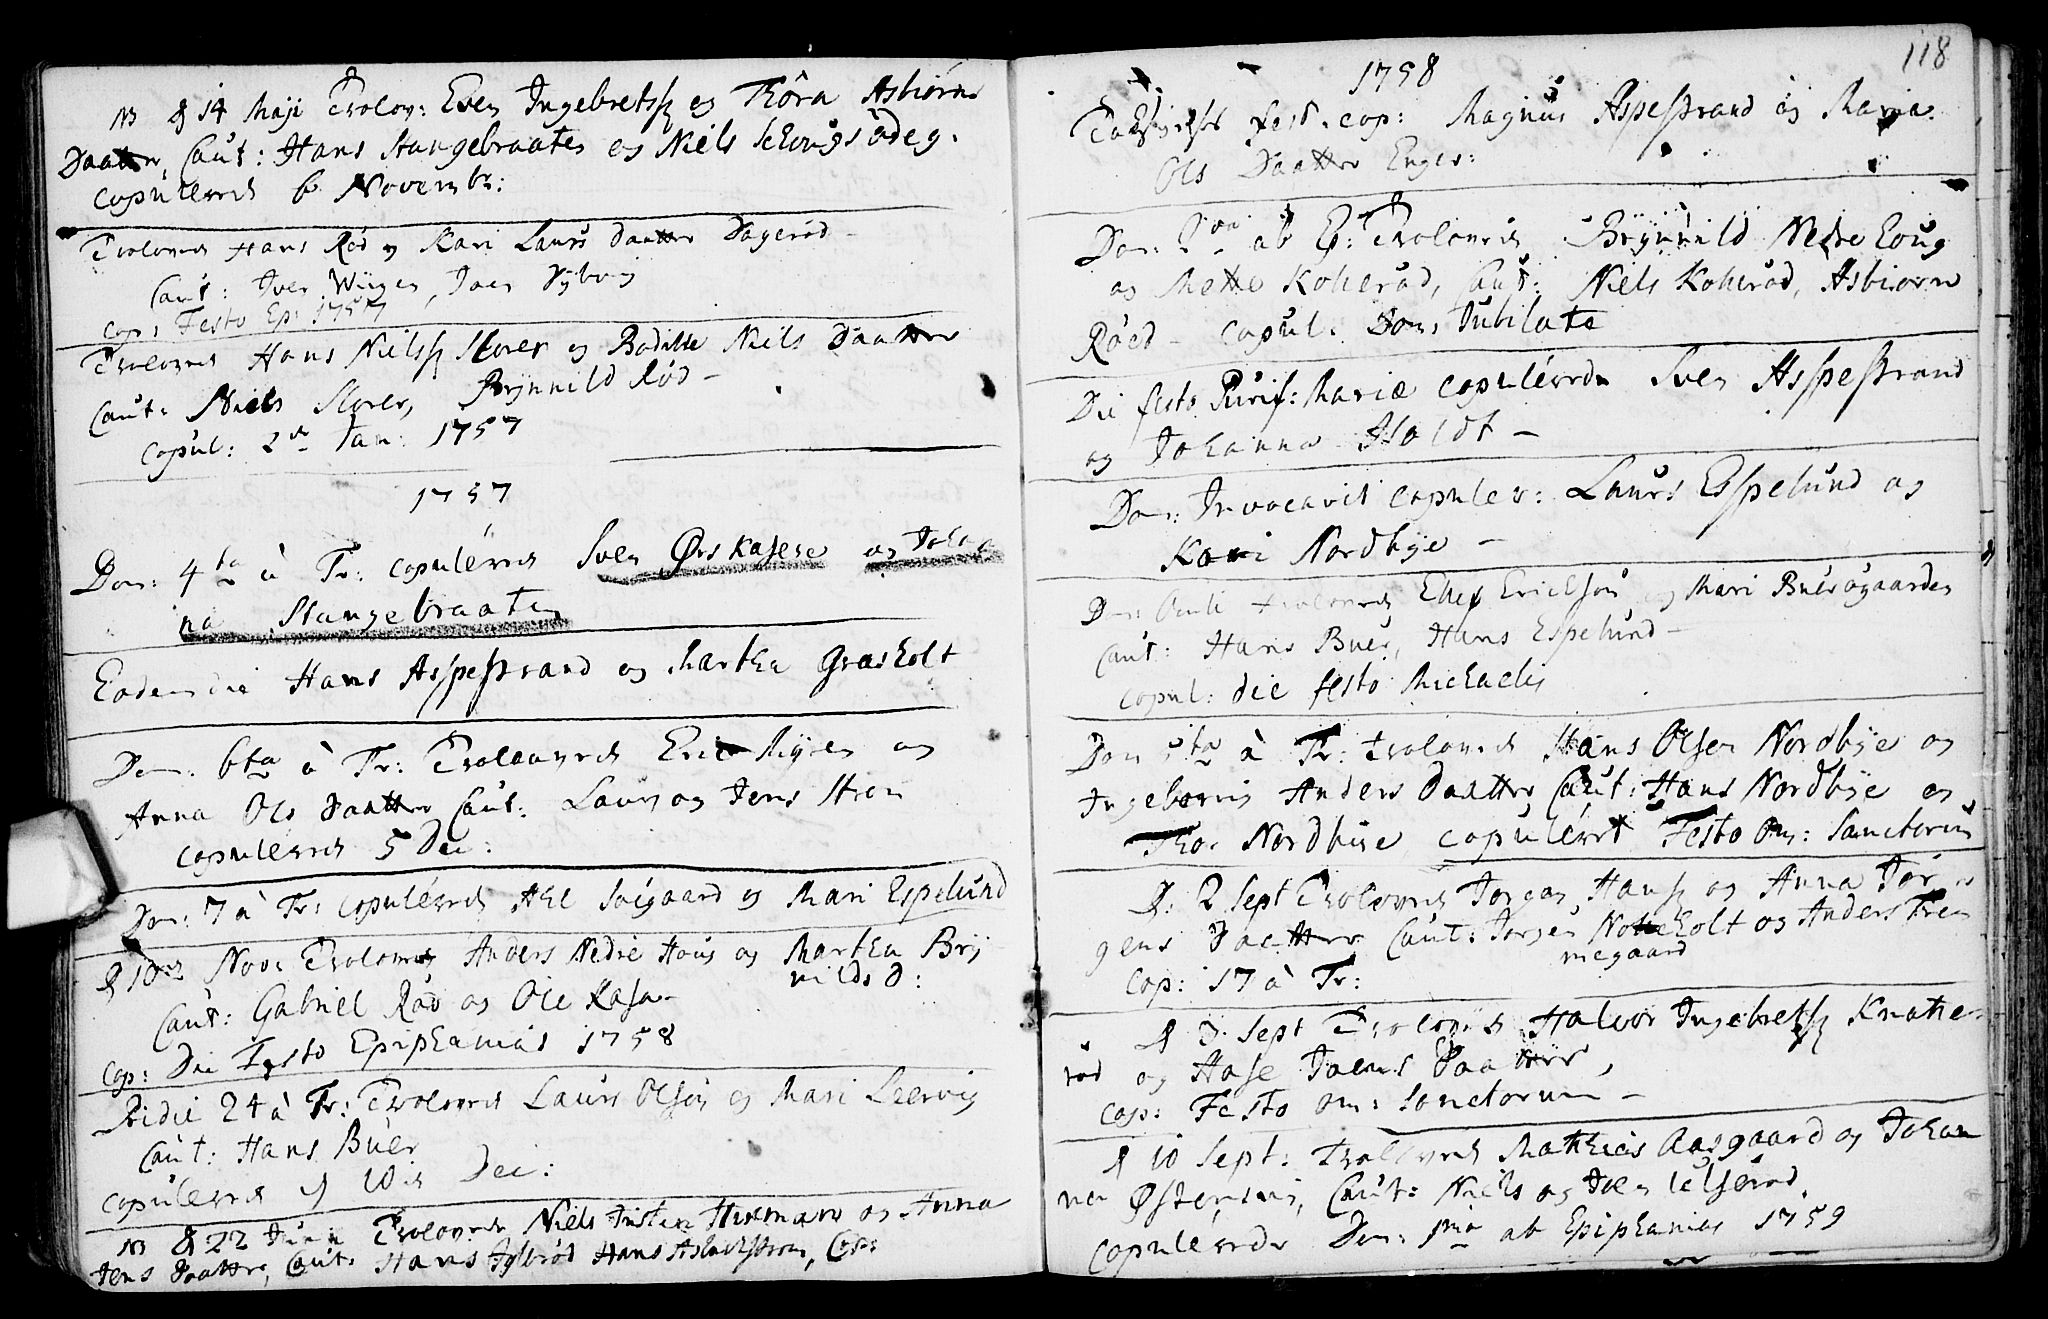 NB d 14 Maji Trolov: Even Ingebretss og Thora Asbiørns
Daatter, Caut: Hans Stangebraaten og Niels Schougs ødeg.
copulered 6 Novembr:
Trolovede Hans Rød og Kari Laurs Daatter Dagerød
Caut: Iver Wiigen, Joen Nybøig
cop: Festo Ep: 1757
Trolovede Hans Nielss Storer og Bodille Niels Daatter
Caut: Niels Storer, Brynnild Rød
copul: 2de Jan: 1757
1757
Dom: 4ta à Tr: copulered Sven Ørskasene og Johan
na Stangebraaten
Eodem die Hans Aspestrand og Martha Grasholt
Dom: 6ta à Tr: Trolovered Eric Myren og
Anna Ols Daatter Caut: Laurs og Jens Strøm
copulered 5 Dec:
Dom: 7 à Tr: copulered Abel Soigaard og Mari Espelund
d 10de Nov: Trolovede Anders Nedre Houg og Martha Bry
nilds D:
Caut: Gabriel Rød og Ole Kasa
Cop: Die Festo Epiphanias 1758
Pridie 24 à Tr: Trolovede Laurs Olsøn og Mari Leervig
Caut: Hans Buer
copulered d 10de Dec:
NB d 22 Junii Trolovede Niels Justen Thremanr og Anna
Jens Daatter, Caut: Hans Hans Cop:
118
1758
fest. cop: Magnus Aspestrand og Maria
Ols Daatter Enger:
Dom: ab Ep: Trolovede Brynnild Nedre Houg
og Mette Kolierød, Caut: Niels Kolierød, Asbiørn
Røed copul: Dom: Jubilate
Die festo Purif: Mariæ copulerede Sven Aspestrand
og Johanna Holdt
Dom: Invocavit copuler: Laurs Espelund og
Kari Nordbye
Dom: Oculi trolovede Elias Ericksøn og Mari Buerøgaarden
Caut: Hans Buer, Hans Espelund
copul: die festo Michaelis
Dom 5ta à Tr: trolovede Hans Olsen Nordbye og
Ingeborrig Anders Daatter, Caut: Hans Nordbye og
Tho. Nordbye copulert Festo Om: Sanctorum
d: 2 Sept Trolovede Jørgen Hanss og Anna Jør
gens Daatter Caut: Jørgen Noteholt og Anders Trem
megaard
Cop: 17 à Tr:
d 3 Sept Trolovede Halvor Ingebretss Knatte
rød og Aase Joens Daatter,
Cop: Festo Om: Sanctorum
d 10 Sept: Trolovede Mathias Aasgaard og Johan
na Østenvig, Caut: Niels og Joen Ulserød,
copulerede Dom: 1ma ab Epiphanias 1759